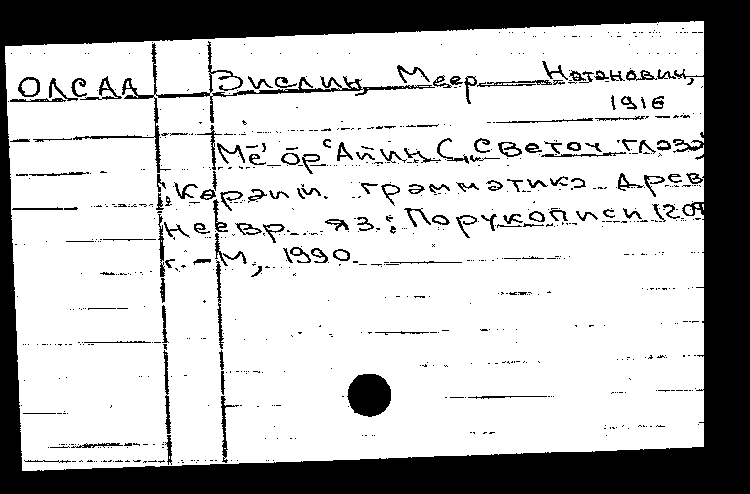 ОЛСАА Зислин, Меер Натанович,
1916
Мē'ōр 'Айин С„Светоч глаза
: Караим. грамматика древ
неевр. яз.: По рукописи 1208
г. - М, 1990.